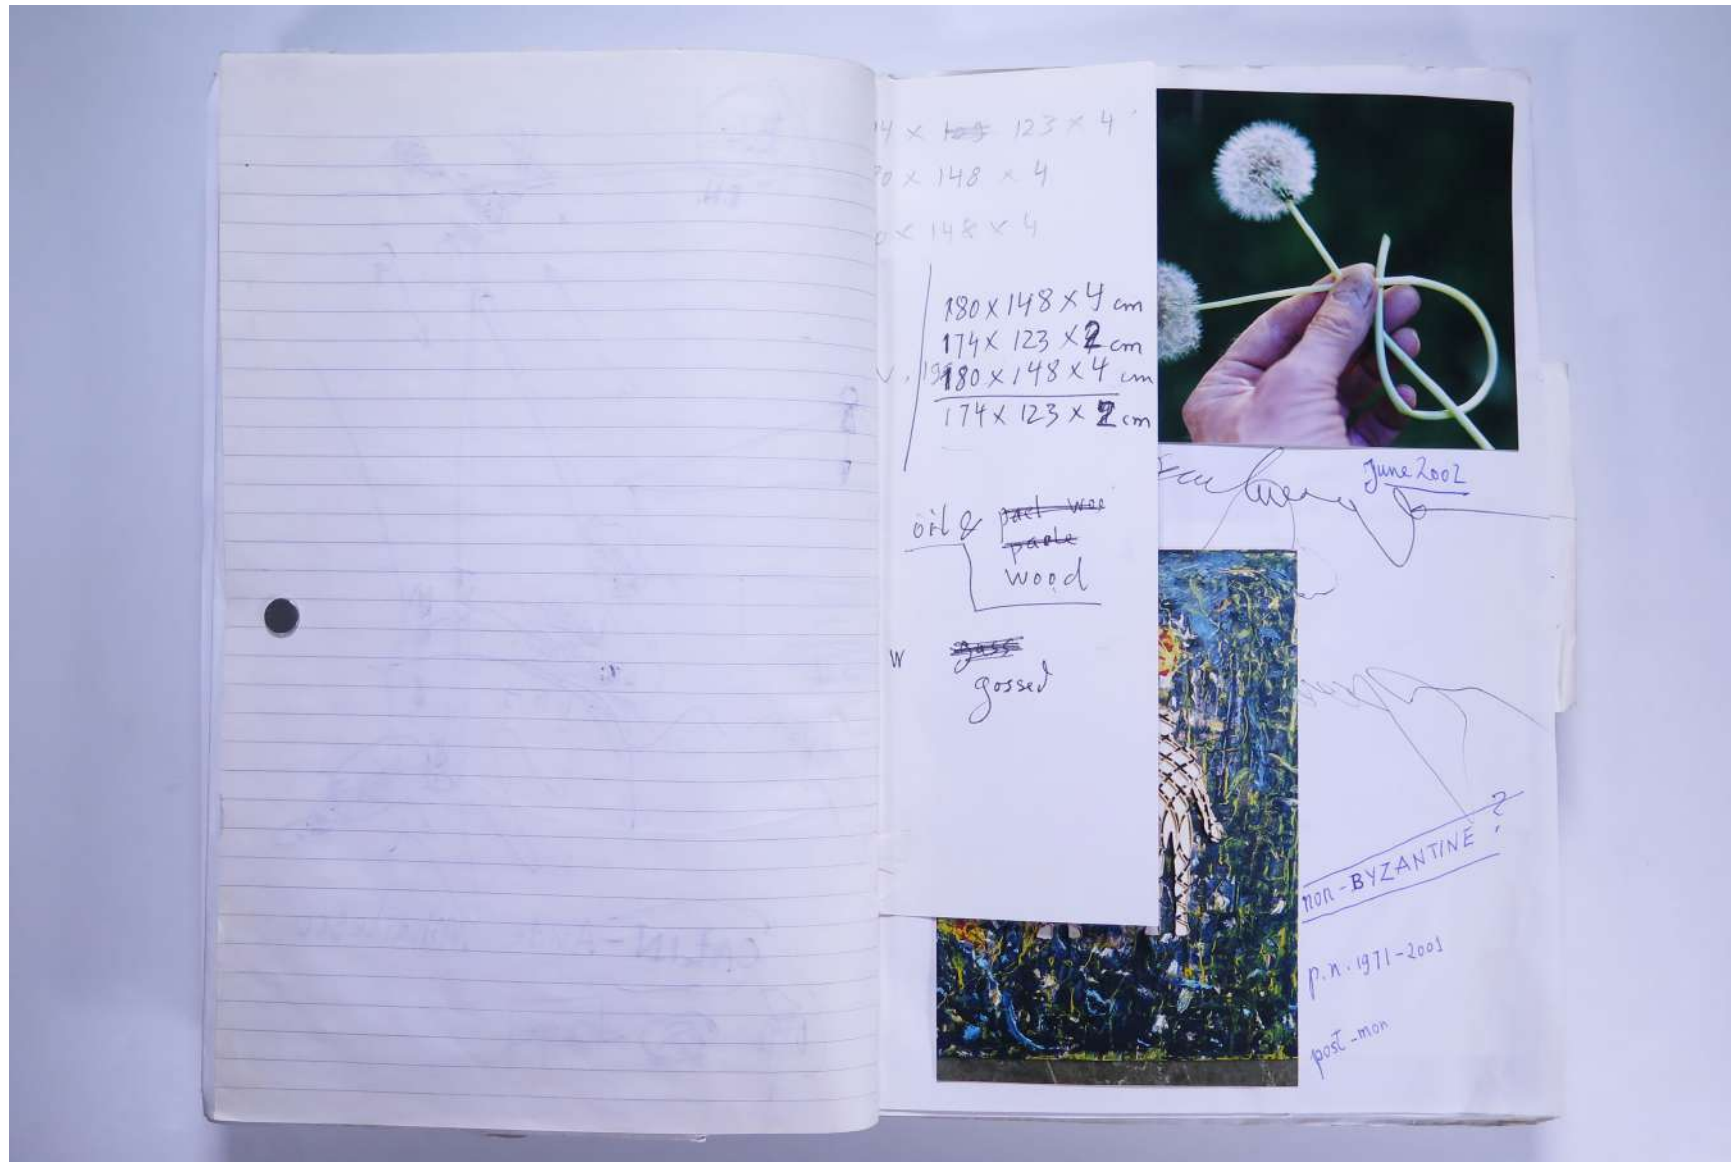 4 × 123 × 4
0 × 148 × 4
0 × 148 × 4
180 × 148 × 4 cm
174 × 123 × 2 cm
180 × 148 × 4 cm
174 × 123 × 2 cm
oil &
wood
w
gossed
June 2002
non-BYZANTINE ?
p.n. 1971-2001
post-mon